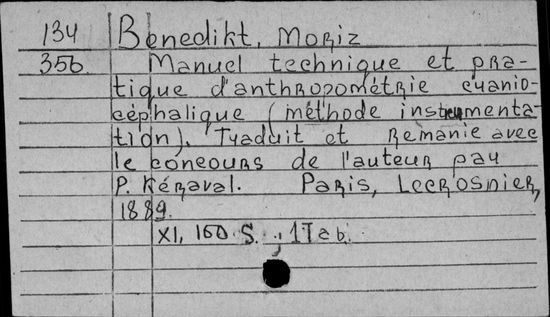 134 Benedikt, Moriz
356 Manuel technique et pra-
tique d'anthropométrie cranio-
céphalique (méthode instrumenta-
tion). Traduit et Remanie avec
le concours de l'auteur par
P. Kéraval. Paris, Lecrosnier,
1889.
XI, 160 S., 1 Tab.